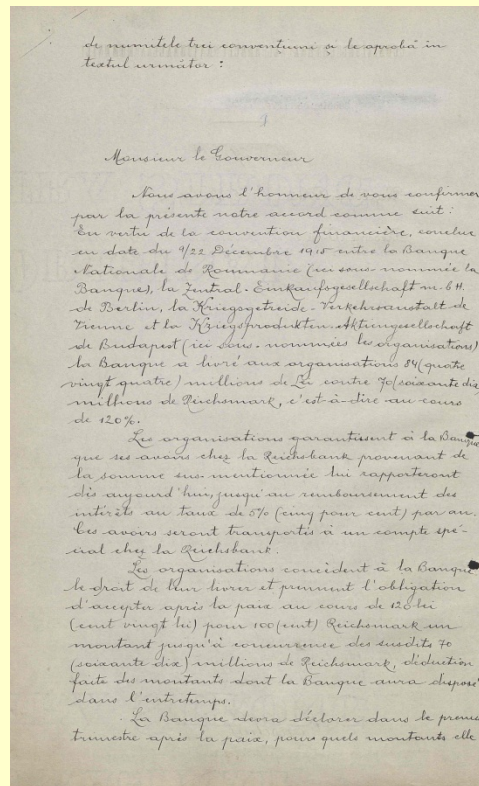 de numitele trei convențiuni și le aprobă în
textul următor :
1
Monsieur le Gouverneur
Nous avons l'honneur de vous confirmer
par la présente notre accord comme suit :
En vertu de la convention financière, conclue
en date du 9/22 Décembre 1915 entre la Banque
Nationale de Roumanie (ici sous-nommée la
Banque), la Zentral-Einkaufsgesellschaft m.b.H.
de Berlin, la Kriegsgetreide-Verkehrsanstalt de
Vienne et la Kriegsprodukten-Aktiengesellschaft
de Budapest (ici sous-nommées les organisations)
la Banque a livré aux organisations 84 (quatre
vingt quatre) millions de Lei contre 70 (soixante dix)
millions de Reichsmark, c'est-à-dire au cours
de 120%.
Les organisations garantissent à la Banque
que ses avoirs chez la Reichsbank provenant de
la somme sus-mentionnée lui rapporteront
dès aujourd'hui, jusqu'au remboursement des
intérêts au taux de 5% (cinq pour cent) par an.
Ces avoirs seront transportés à un compte spé-
cial chez la Reichsbank.
Les organisations concèdent à la Banque
le droit de leur livrer et prennent l'obligation
d'accepter après la paix au cours de 120 lei
(cent vingt lei) pour 100 (cent) Reichsmark un
montant jusqu'à concurrence des susdits 70
(soixante dix) millions de Reichsmark, déduction
faite des montants dont la Banque aura disposé
dans l'entretemps.
La Banque devra déclarer dans le premier
trimestre après la paix, pour quels montants elle